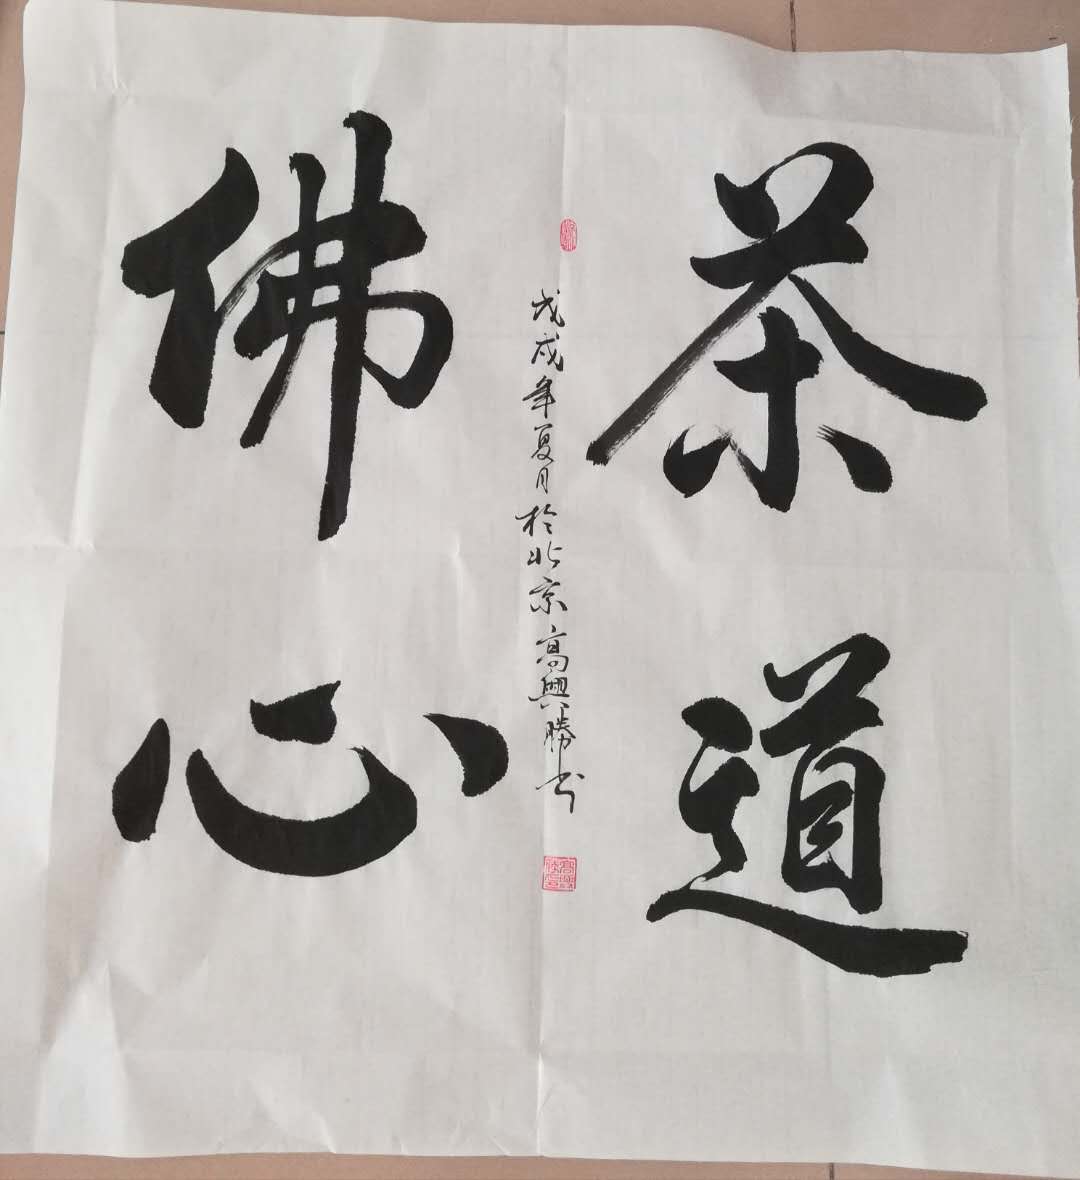 茶道
佛心
戊戌年夏月於北京高興勝书